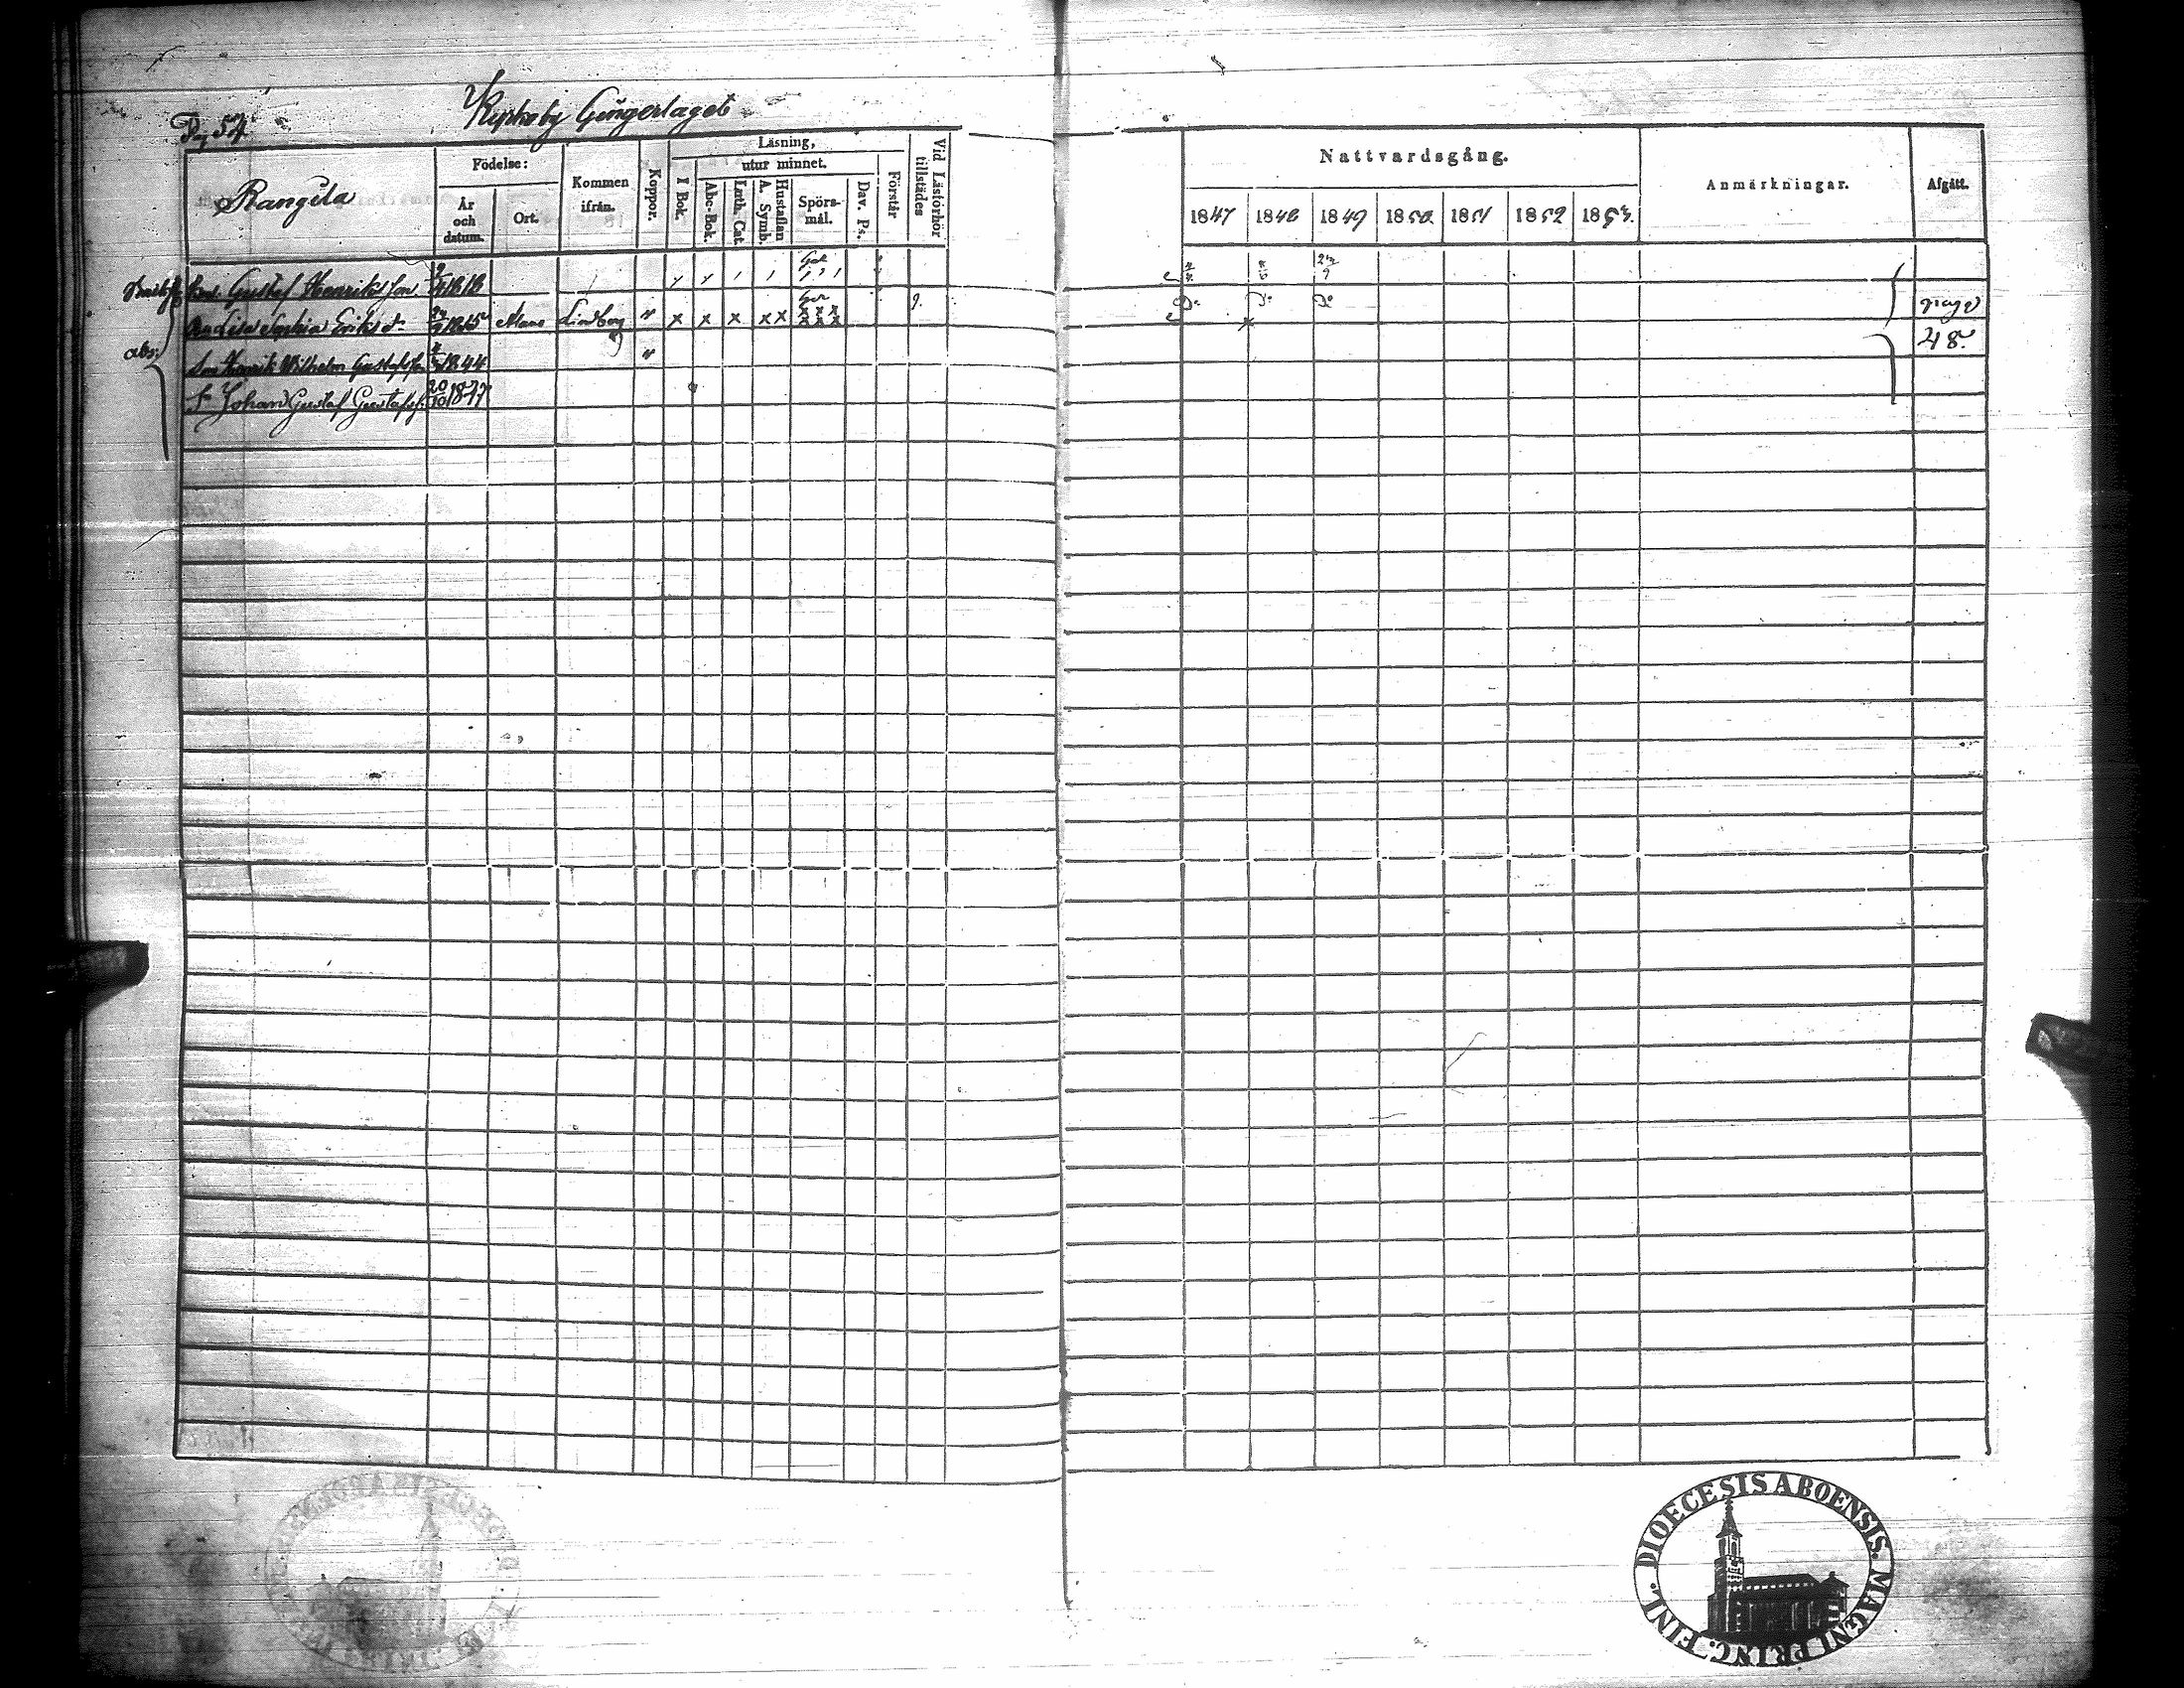 Pag 54.
Kyrkoby Gingerlaget
Rangila
Födelse:
År och datum.
Ort.
Kommen ifrån.
Koppor.
Läsning,
I Bok.
utur minnet.
Abc-Bok.
Luth. Cat.
A. Symb.
Hustaflan
Spörs-mål.
Dav. Ps.
Förstår
Vid Läsförhör tillstädes
Nattvardsgång.
1847 1848 1849 1850 1851 1852 1853.
Anmärkningar.
Afgått.
Gustaf Henriksson
Lisa Sophia Eriks d 1815 Lindberg
abs:
Son Henrik Wilhelm Gustafsson 1844
S Johan Gustaf Gustafss: 20/10 1847
24/9
Do Do Do
48.
DIOECESIS ABOENSIS. MAGNI PRINC. FINL.